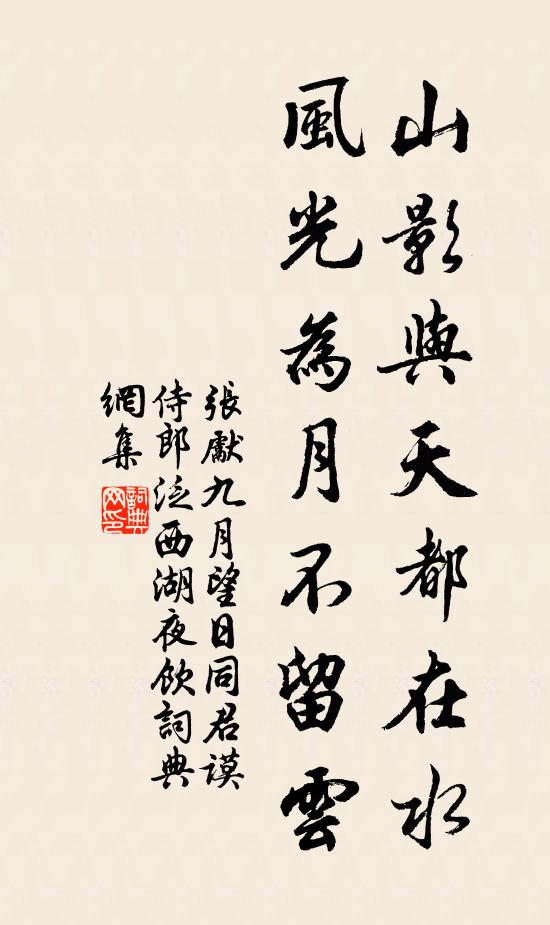 山影與天都在水
風光為月不留雲
張獻九月望日同君謨
侍郎泛西湖夜飲詞典
網集
詞典網印